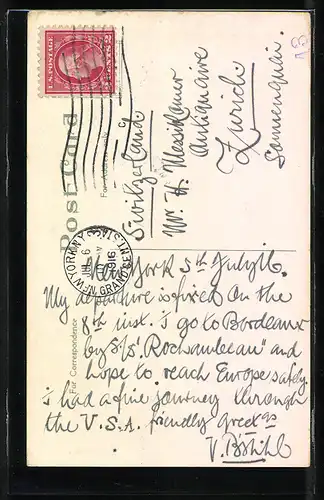 U.S. POSTAGE
2 CENTS 2
13
Post Card
For
Mr. H. Messikomer
Antiquaire
Zurich
Sonnenquai.
Switzerland
NEW YORK, N.Y.
GRAND CENT. STA.
1916
For Correspondence
New York 5th July 16.
My departure is fixed on the
8th inst. I go to Bordeaux
by S/S "Rochambeau" and
hope to reach Europe safely.
I had a fine journey through
the U.S.A. friendly greetgs
V.